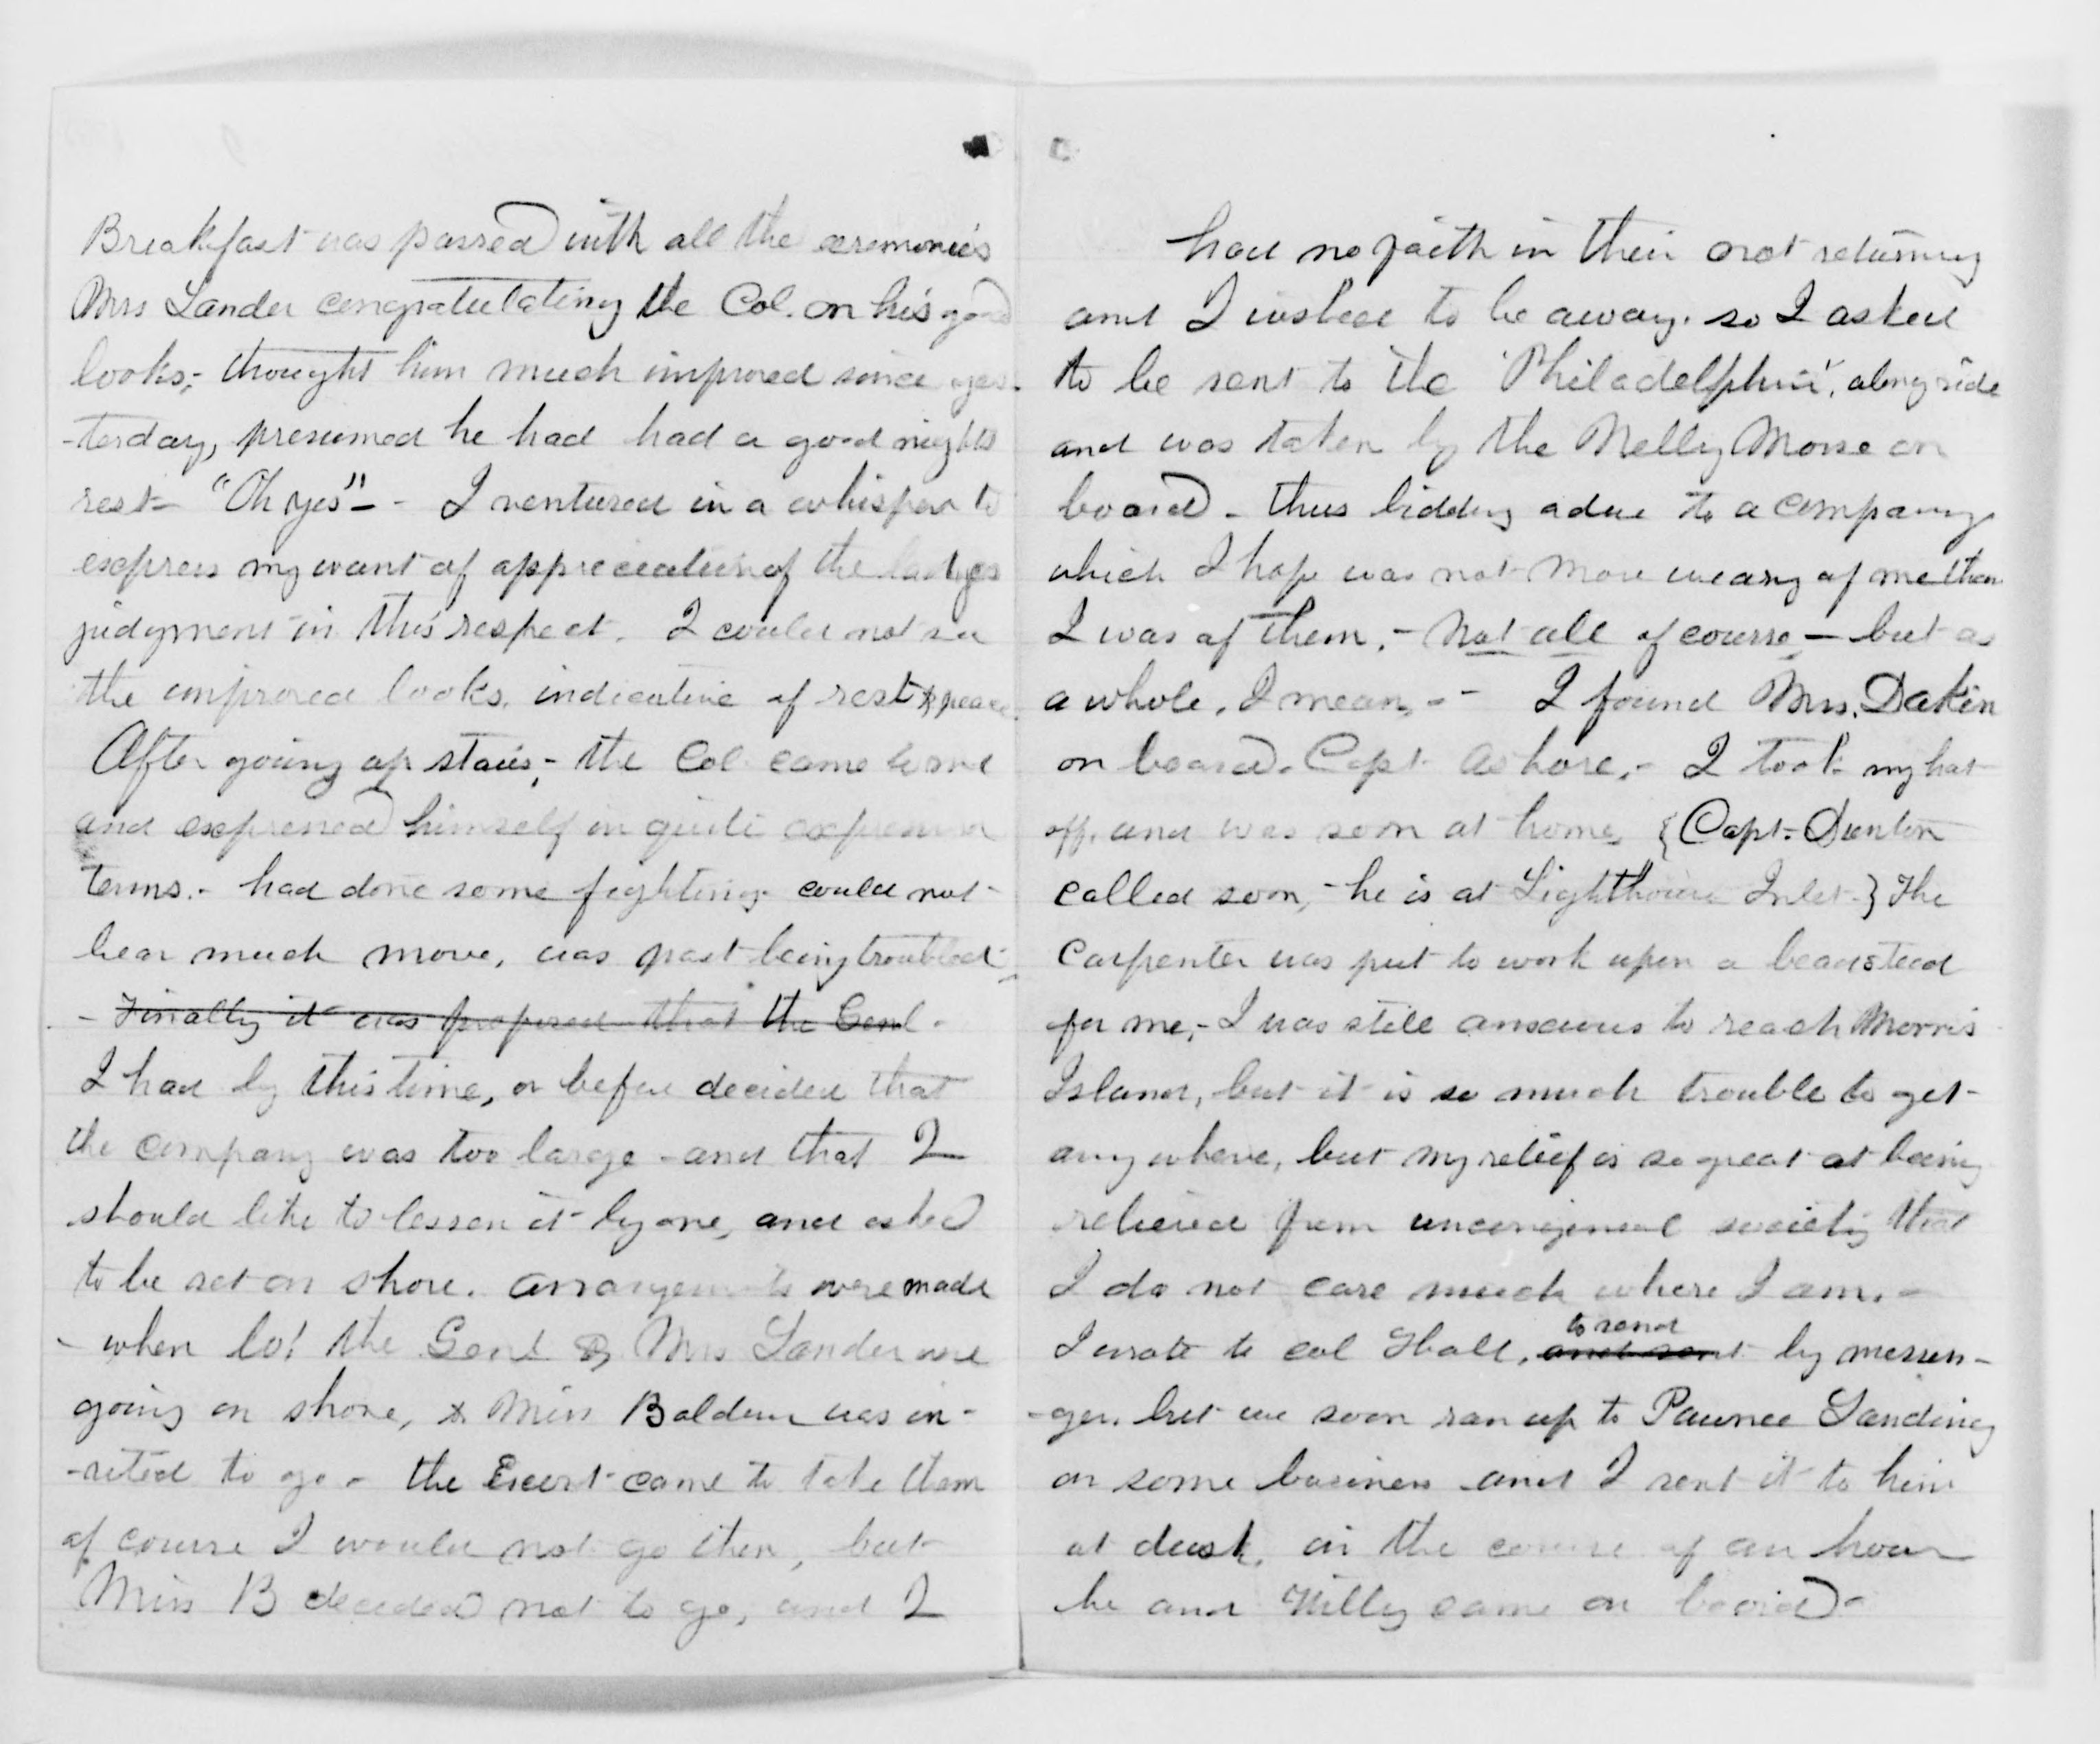 Breakfast was passed with all the ceremonies
Mrs Lander congratulating the Col. on his good
looks;- thought him much improved since yes-
-terday, presumed he had had a good nights
rest- "Oh yes"- - I ventured in a whisper to
express my want of appreciation of the ladyes
judgment in this respect. I could not see
the improved looks, indicative of rest & peace.
After going up stairs;- the Col. came
and expressed himself in quite expressive
terms.- had done some fighting. could not
bear much more, was past being troubled-
- Finally it was proposed that the Genl.
I had by this time, or before decided that
the company was too large - and that I
should like to lessen it by one, and asked
to be set on shore. arrangements were made
- when lo! the Genl & Mrs Lander were
going on shore, & Miss Baldwin was in-
-vited to go - the Escort came to take them
of course I would not go then, but
Miss B decided not to go, and I
had no faith in their not returning
and I wished to be away. so I asked
to be sent to the 'Philadelphia', alongside
and was taken by the Nelly Morse on
board - thus bidding adue to a company
which I hope was not more weary of me than
I was of them.- not all of course - but as
a whole, I mean,- - I found Mrs. Dakin
on board. Capt ashore.- I took my hat
off, and was soon at home, {Capt. Dunton
called soon,- he is at Lighthouse Inlet-} The
Carpenter was put to work upon a beadstead
for me,- I was still anxious to reach Morris
Island, but it is so much trouble to get
any where, but my relief is so great at being
relieved from uncongenial society that
I do not care much where I am. -
I wrote to col Hall, and sent to send by messen-
-ger. but we soon ran up to Pawnee Landing
on some business and I sent it to him
at dusk, in the course of an hour
he and Willy came on board -